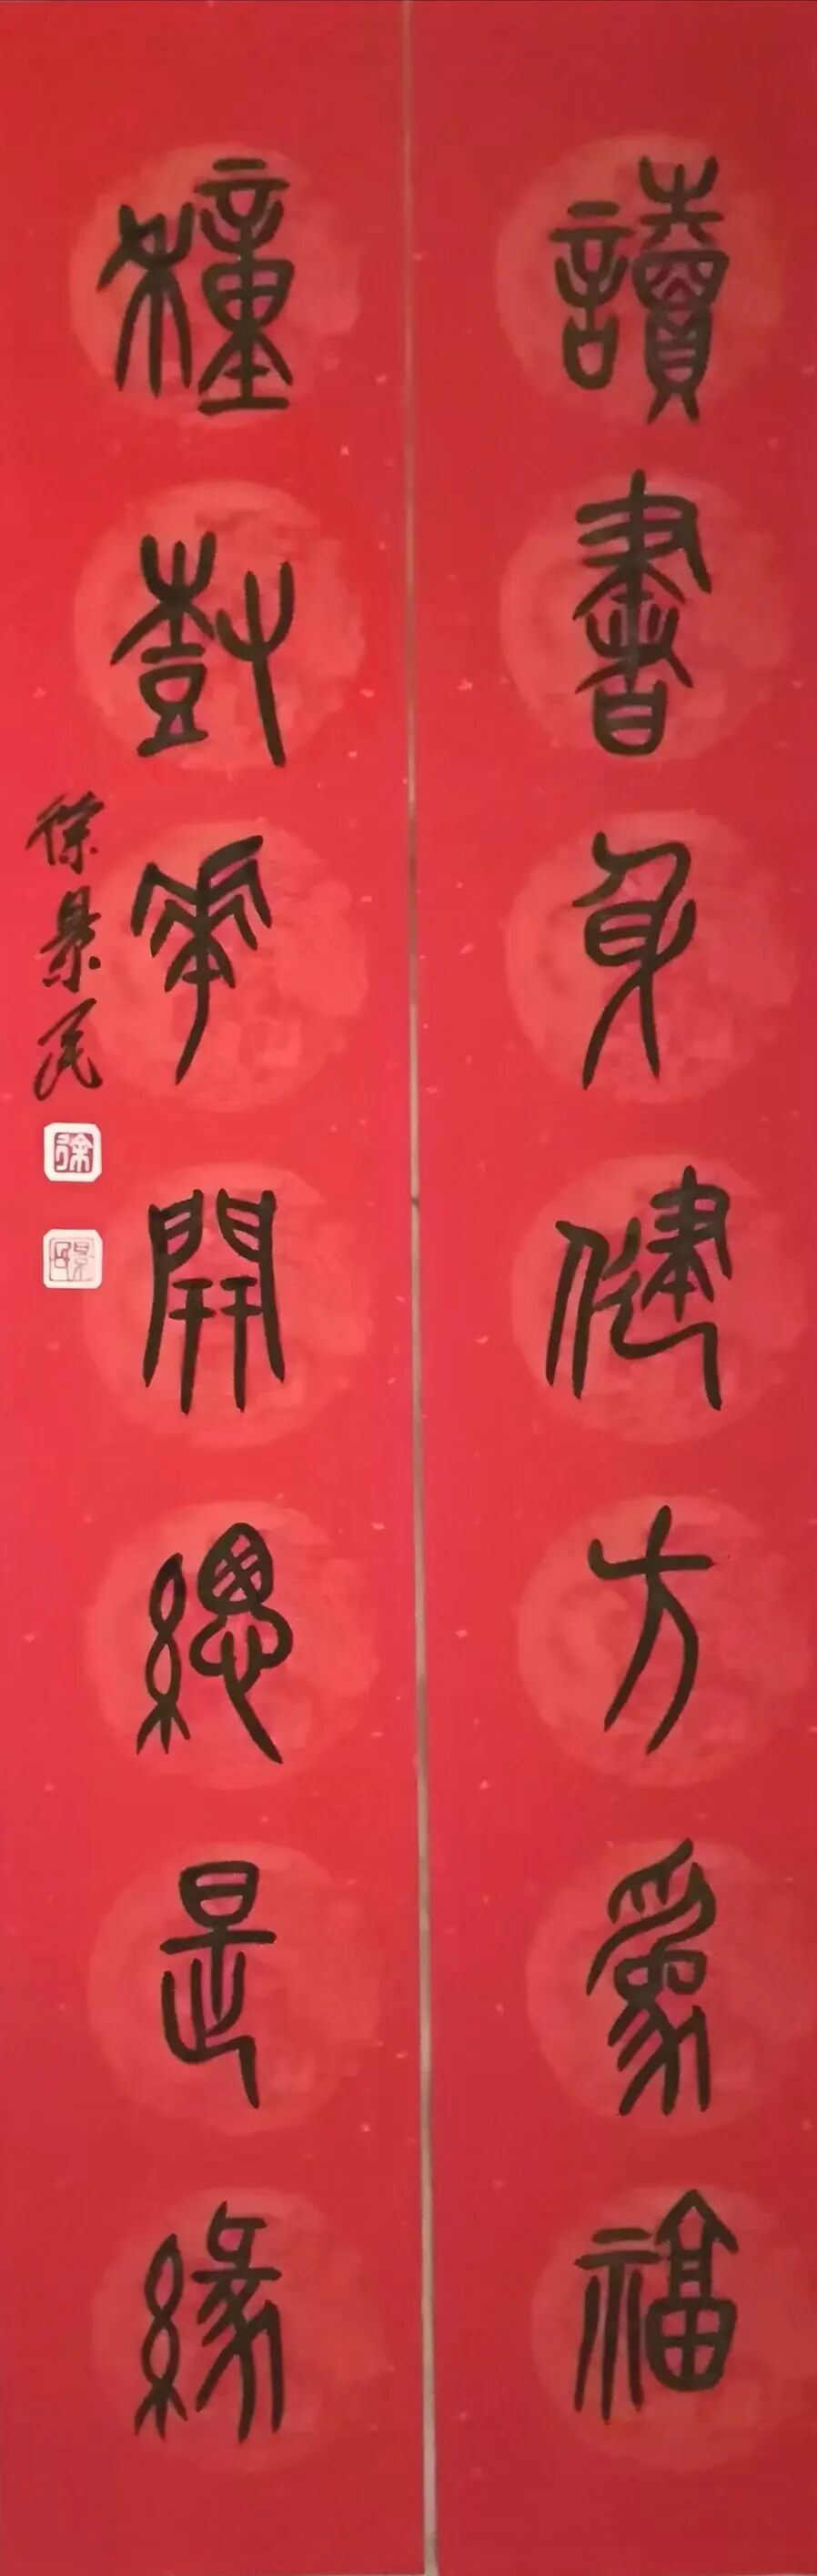 讀書身健方爲福
穜尌華開總是緣
徐景民
徐
景民